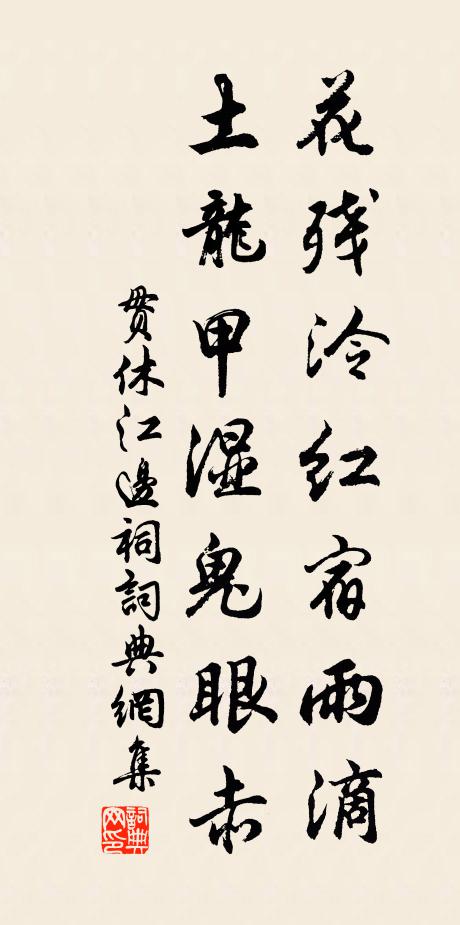 花残冷红宿雨滴
土龍甲湿鬼眼赤
贯休江邊祠詞典網集
詞典網印